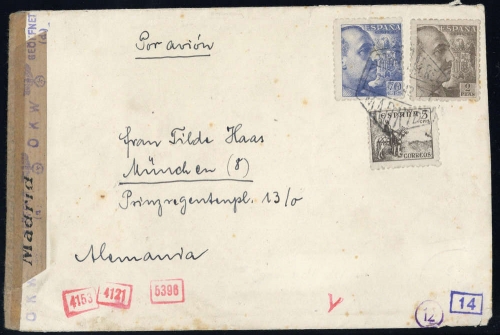 Por avión
ESPAÑA
70
CTS
ESPAÑA
2
PTAS
ESPAÑA 5
CORREOS
MADRID
Frau Tilde Haas
München (8)
Prinzregentenpl. 13/0
Alemania
GEÖFFNET
O K W
Madrid
O K W
4153 4121 5396
12
14